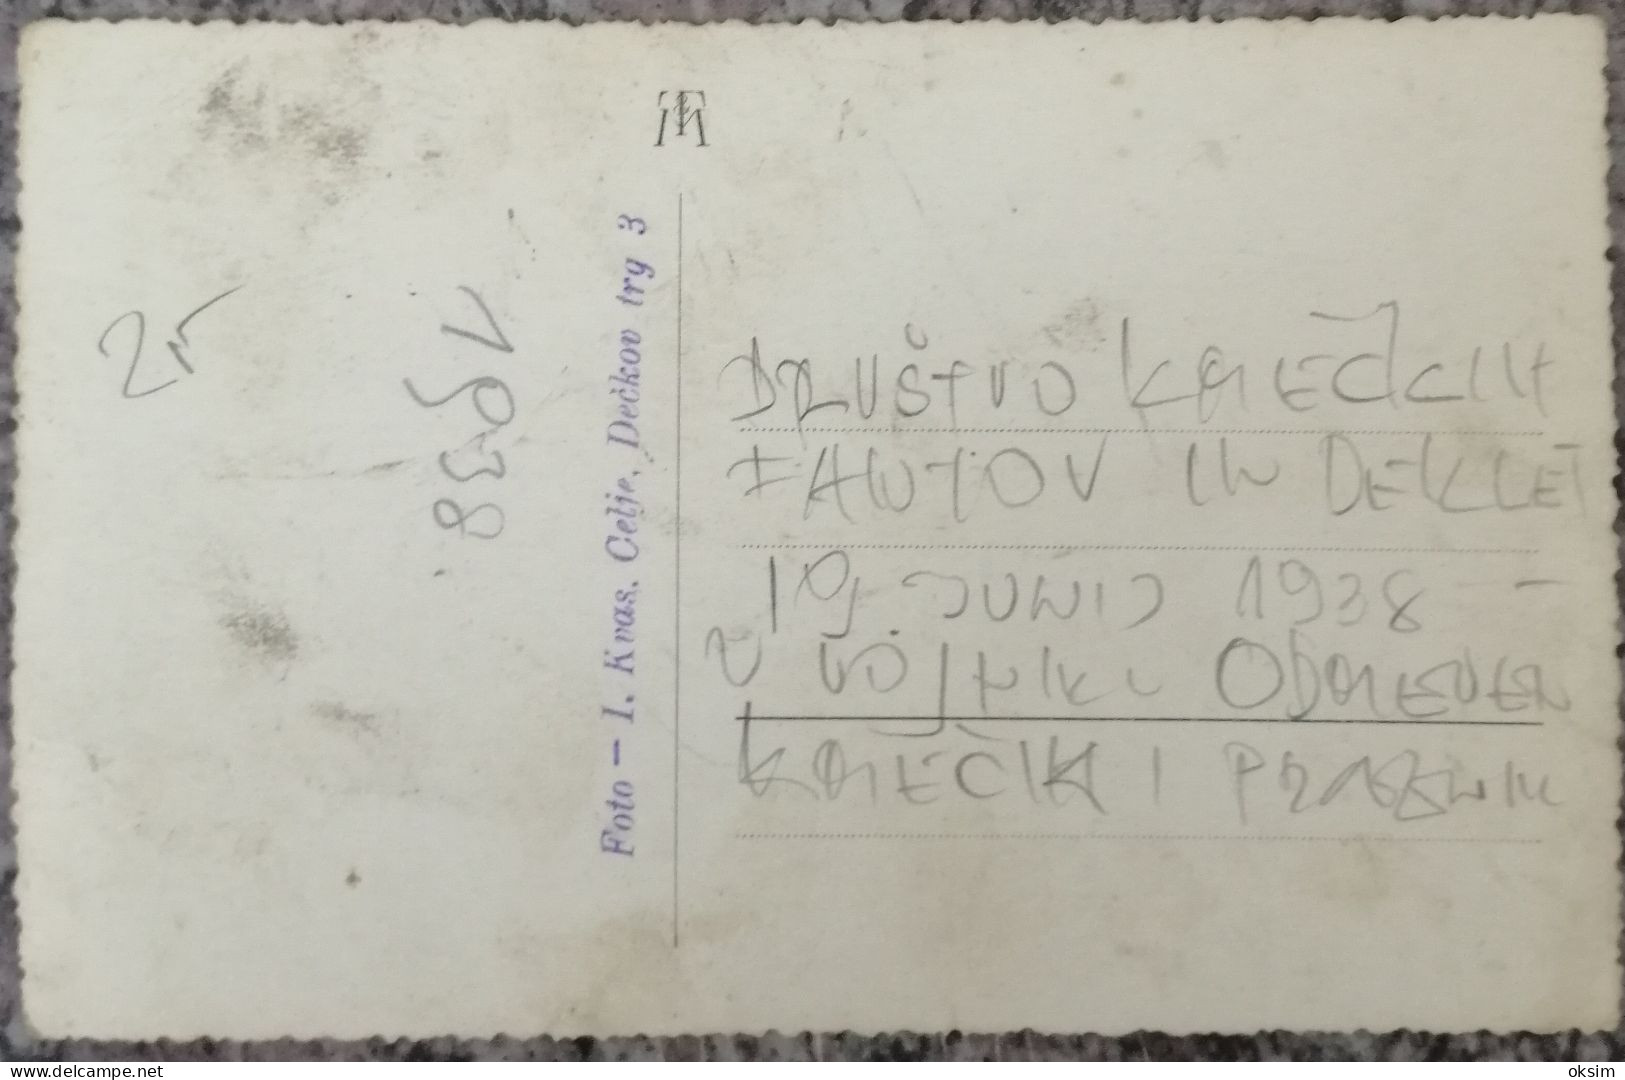 2r
1938
Foto – I. Kvas. Celje, Dečkov trg 3
DRUŠTVO KMEČKIH
FANTOV IN DEKLET
19. JUNIJ 1938 –
V VOJNIKU
KMEČKI PRAZNIK
www.delcampe.net
oksim